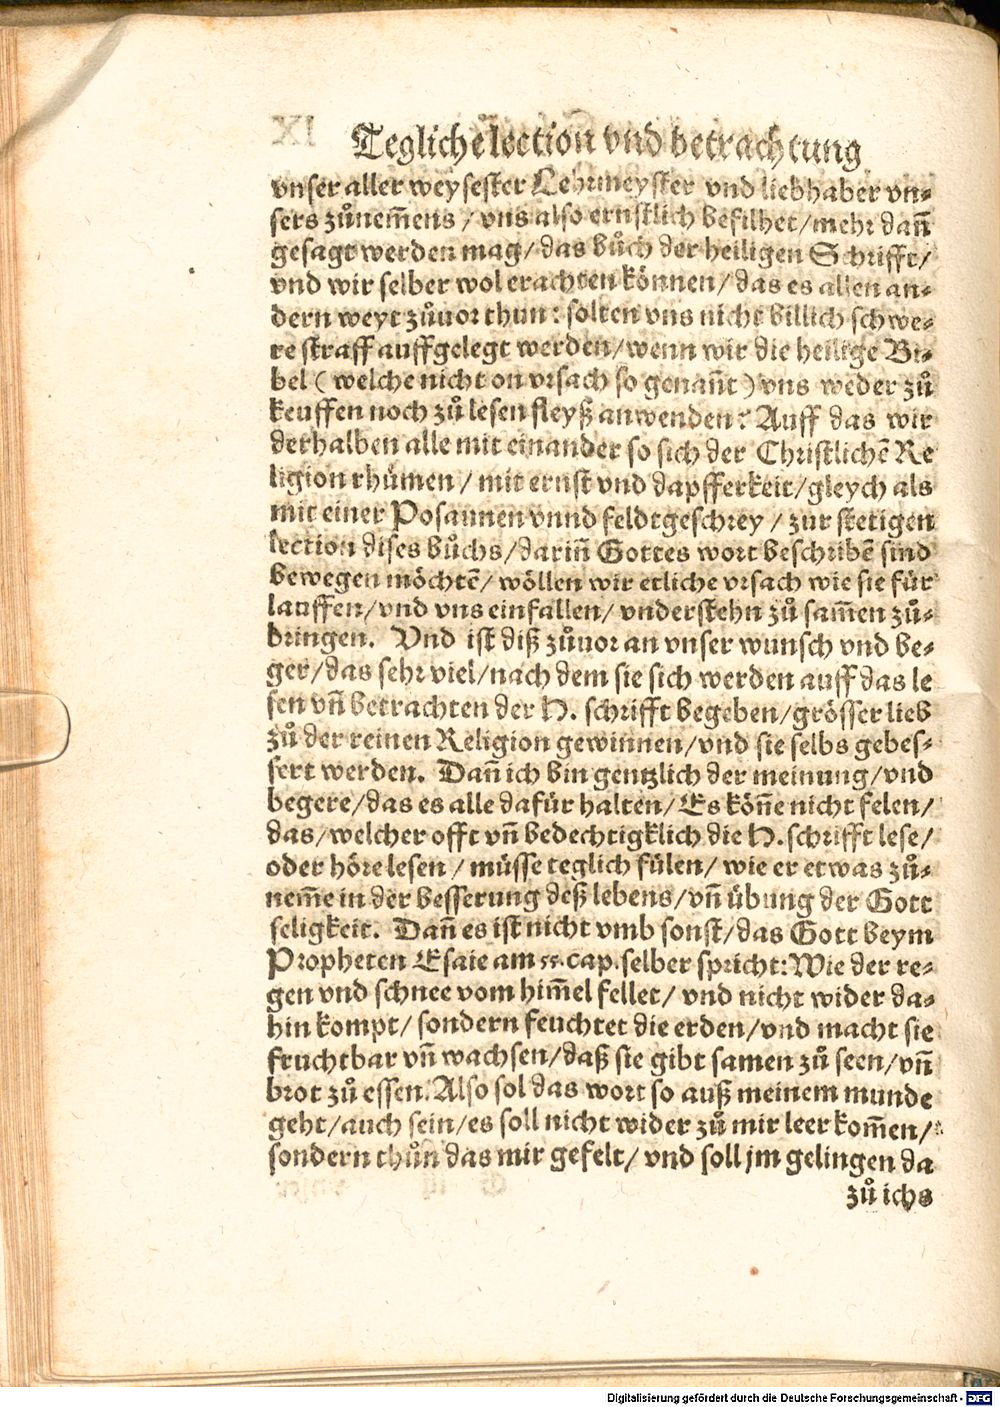 Tegliche lection vnd betrachtung
vnser aller weysester Lehrmeyster vnd liebhaber vn-
sers zůnem̃ens / vns also ernstlich befilhet/mehr dañ
gesagt werden mag/das bůch der heiligen Schrifft/
vnd wir selber wol erachten können/das es allen an-
dern weyt zůuor thun: solten vns nicht billich schwe-
re straff auffgelegt werden/wenn wir die heilige Bi-
bel ( welche nicht on vrsach so genañt ) vns weder zů
keuffen noch zů lesen fleyß anwenden? Auff das wir
derhalben alle mit einander so sich der Christlichẽ Re
ligion rhümen / mit ernst vnd dapfferkeit/gleych als
mit einer Posaunen vnnd feldtgeschrey / zur stetigen
lection dises bůchs/dariñ Gottes wort beschribẽ sind
bewegen möchtẽ/ wöllen wir etliche vrsach wie sie für
lauffen/vnd vns einfallen/ vnderstehn zů sam̃en zů-
bringen. Vnd ist diß zůuor an vnser wunsch vnd be-
ger/das sehr viel/nach dem sie sich werden auff das le
sen vñ betrachten der H. schrifft begeben/grösser lieb
zů der reinen Religion gewinnen/vnd sie selbs gebes-
sert werden. Dañ ich bin gentzlich der meinung/vnd
begere/das es alle dafür halten/Es köñe nicht felen/
das/welcher offt vñ bedechtigklich die H. schrifft lese/
oder höre lesen / müsse teglich fülen/ wie er etwas zů-
nem̃e in der besserung deß lebens/vñ übung der Gott
seligkeit. Dañ es ist nicht vmb sonst/das Gott beym
Propheten Esaie am 55. cap. selber spricht: Wie der re-
gen vnd schnee vom him̃el fellet/ vnd nicht wider da-
hin kompt/ sondern feuchtet die erden/vnd macht sie
fruchtbar vñ wachsen/daß sie gibt samen zů seen/vñ
brot zů essen. Also sol das wort so auß meinem munde
geht/auch sein/es soll nicht wider zů mir leer kom̃en/
sondern thůn das mir gefelt/ vnd soll jm gelingen da
zů ichs
Digitalisierung gefördert durch die Deutsche Forschungsgemeinschaft - DFG